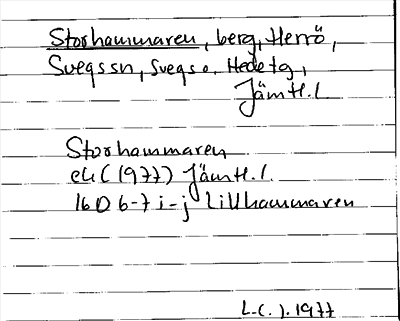 Storhammaren, berg, Herrö,
Svegssn, Svegs o. Hede tg,
Jämtl. l
Storhammaren
ek (1977) Jämtl. l.
16D 6-7 i-j Lillhammaren
L.C. ). 1977